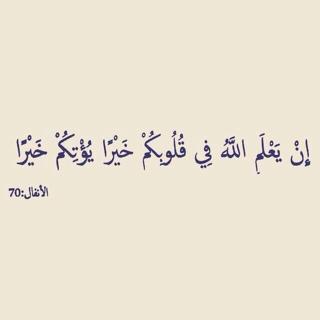 إِنْ يَعْلَمِ اللَّهُ فِي قُلُوبِكُمْ خَيْرًا يُؤْتِكُمْ خَيْرًا
الأنفال:70